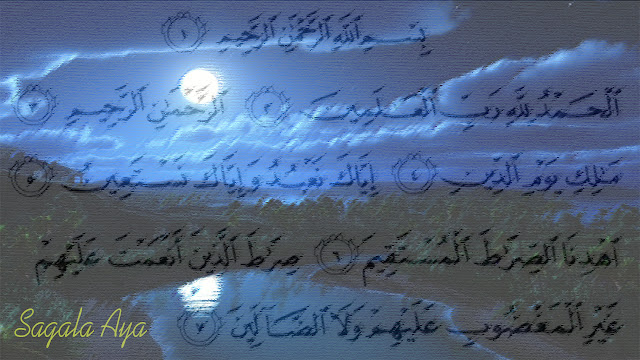 بِسْمِ ٱللَّهِ ٱلرَّحْمَٰنِ ٱلرَّحِيمِ ١
ٱلْحَمْدُ لِلَّهِ رَبِّ ٱلْعَٰلَمِينَ ٢ ٱلرَّحْمَٰنِ ٱلرَّحِيمِ ٣
مَٰلِكِ يَوْمِ ٱلدِّينِ ٤ إِيَّاكَ نَعْبُدُ وَإِيَّاكَ نَسْتَعِينُ ٥
ٱهْدِنَا ٱلصِّرَٰطَ ٱلْمُسْتَقِيمَ ٦ صِرَٰطَ ٱلَّذِينَ أَنْعَمْتَ عَلَيْهِمْ
غَيْرِ ٱلْمَغْضُوبِ عَلَيْهِمْ وَلَا ٱلضَّآلِّينَ ٧
Sagala Aya